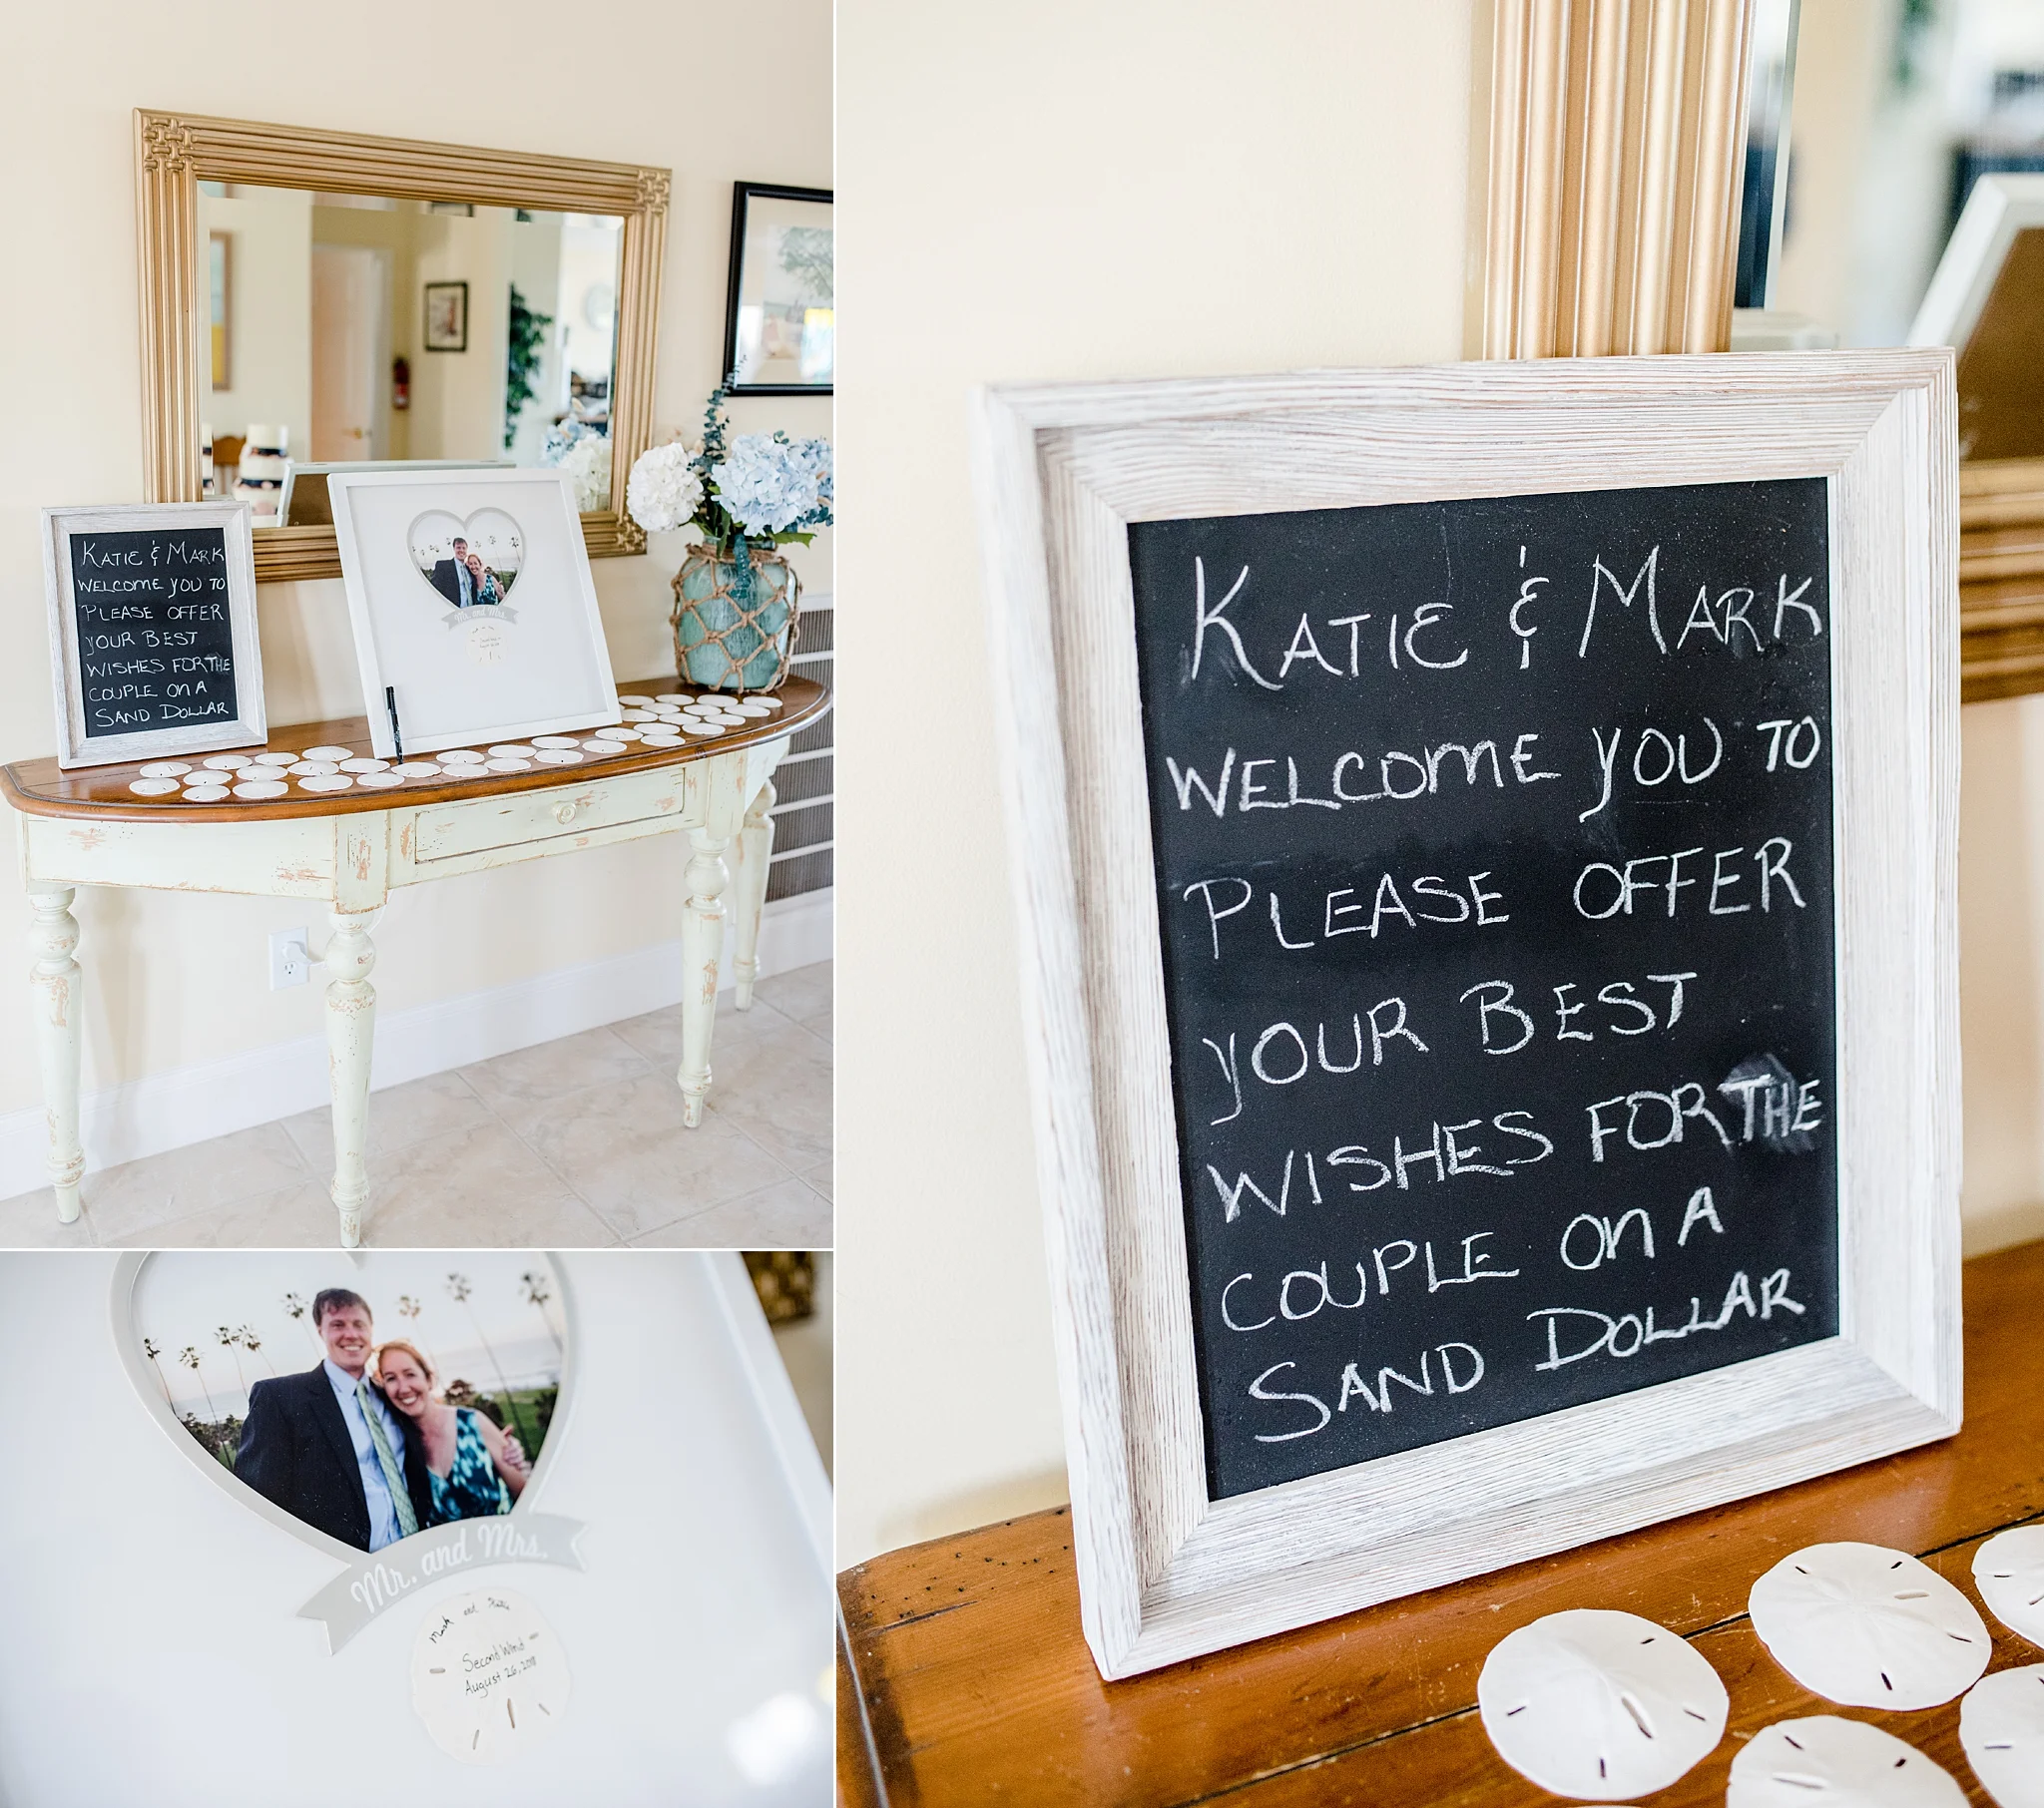 KATIE & MARK
WELCOME YOU TO
PLEASE OFFER
YOUR BEST
WISHES FOR THE
COUPLE ON A
SAND DOLLAR
Mr. and Mrs.
Mr. and Mrs.
Mark and Katie
Second Wind
August 26, 2018
KATIE & MARK
WELCOME YOU TO
PLEASE OFFER
YOUR BEST
WISHES FOR THE
COUPLE ON A
SAND DOLLAR